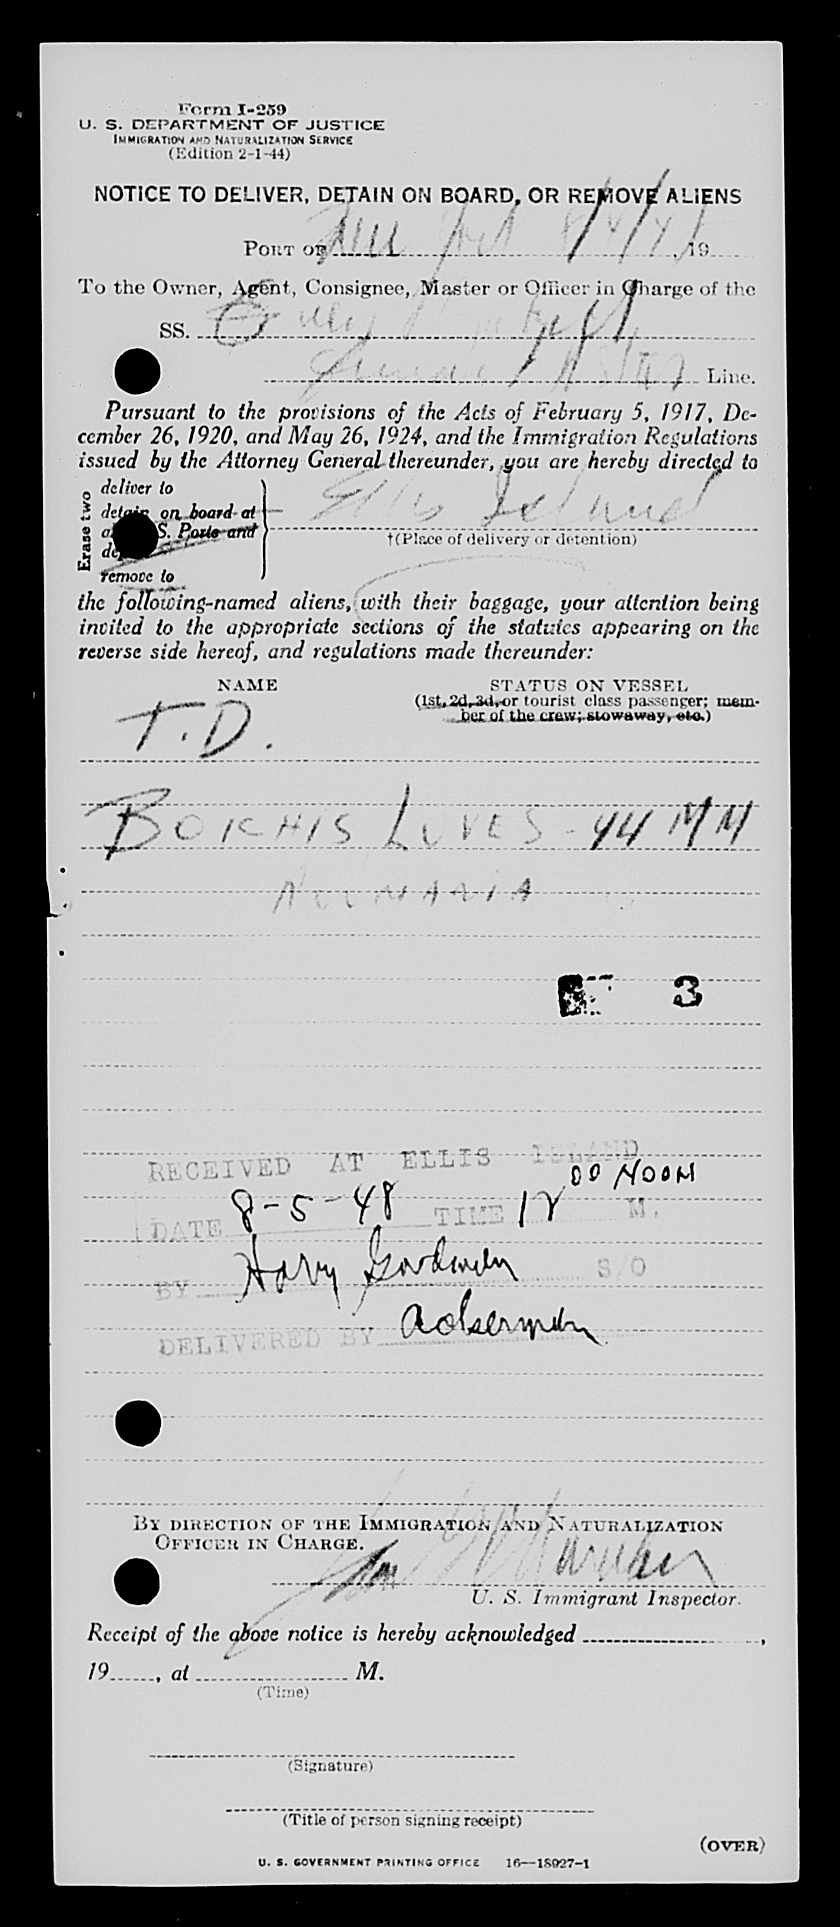 Form I-259
U. S. DEPARTMENT OF JUSTICE
IMMIGRATION AND NATURALIZATION SERVICE
(Edition 2-1-44)
NOTICE TO DELIVER, DETAIN ON BOARD, OR REMOVE ALIENS
PORT OF New York 8/4/48, 19
To the Owner, Agent, Consignee, Master or Officer in Charge of the
SS.
Line.
Pursuant to the provisions of the Acts of February 5, 1917, De-
cember 26, 1920, and May 26, 1924, and the Immigration Regulations
issued by the Attorney General thereunder, you are hereby directed to
Erase two
deliver to
detain on board at
S. Ports and
remove to
Ellis Island
†(Place of delivery or detention)
the following-named aliens, with their baggage, your attention being
invited to the appropriate sections of the statutes appearing on the
reverse side hereof, and regulations made thereunder:
NAME STATUS ON VESSEL
(1st, 2d, 3d, or tourist class passenger; mem-
ber of the crew; stowaway, etc.)
T.D.
BOKCHIS LUVES - 44 M M
ROUMANIA
3
RECEIVED AT ELLIS ISLAND
DATE 8-5-48 TIME 12 00 NOON M.
BY Harry Goodman S/O
DELIVERED BY Ackerman
BY DIRECTION OF THE IMMIGRATION AND NATURALIZATION
OFFICER IN CHARGE.
U. S. Immigrant Inspector.
Receipt of the above notice is hereby acknowledged ,
19 , at M.
(Time)
(Signature)
(Title of person signing receipt)
(OVER)
U. S. GOVERNMENT PRINTING OFFICE 16—18927-1